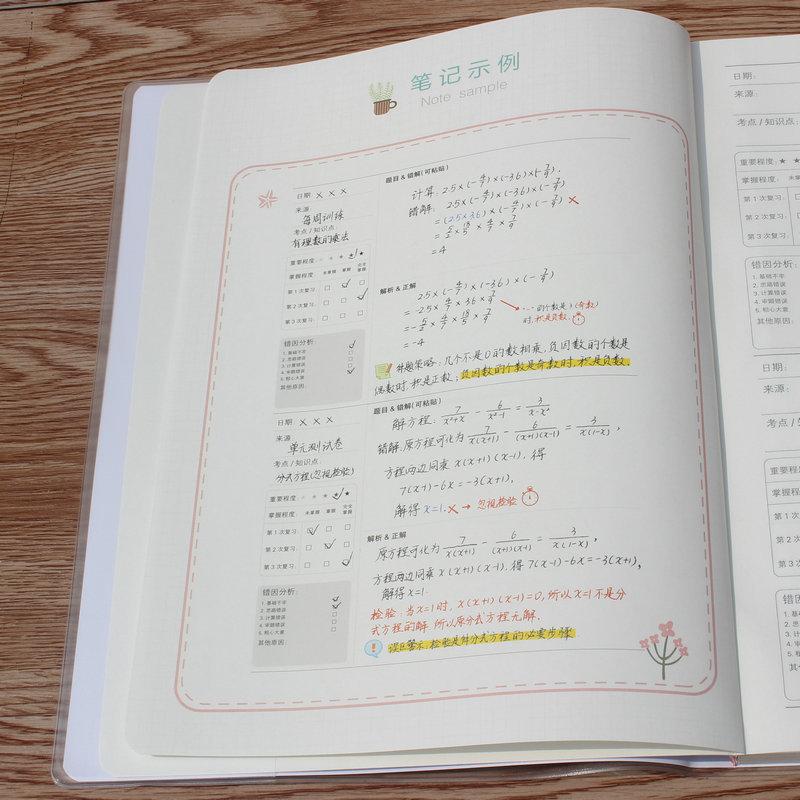 笔记示例
Note sample
日期: × × ×
来源:
每周训练
考点 / 知识点:
有理数的乘法
重要程度: ★ ★ ★ ★ ★
掌握程度: 未掌握 掌握 完全掌握
第 1 次复习: □ □ □
第 2 次复习: □ □ □
第 3 次复习: □ □ □
错因分析:
1. 基础不牢
2. 思路错误
3. 计算错误
4. 审题错误
5. 粗心大意
其他原因:
题目 & 错解(可粘贴)
计算: 2.5×(-4/7)×(-3.6)×(-7/9).
错解: 2.5×(-4/7)×(-3.6)×(-7/9)
=(2.5×3.6)×(-4/7)×(-7/9) ×
=5/2×18/5×4/7×7/9
=4
解析 & 正解
2.5×(-4/7)×(-3.6)×(-7/9)
=-2.5×4/7×3.6×7/9
=-5/2×4/7×18/5×7/9
=-4
的个数是3(奇数)
时,积是负数.
解题策略: 几个不是0的数相乘, 负因数的个数是
偶数时, 积是正数; 负因数的个数是奇数时, 积是负数.
日期: × × ×
来源:
单元测试卷
考点 / 知识点:
分式方程(忽视检验)
重要程度: ★ ★ ★ ★ ★
掌握程度: 未掌握 掌握 完全掌握
第 1 次复习: □ □ □
第 2 次复习: □ □ □
第 3 次复习: □ □ □
错因分析:
1. 基础不牢
2. 思路错误
3. 计算错误
4. 审题错误
5. 粗心大意
其他原因:
题目 & 错解(可粘贴)
解方程: 7/(x²+x) - 6/(x²-1) = 3/(x-x²)
错解: 原方程可化为 7/(x(x+1)) - 6/((x+1)(x-1)) = 3/(x(1-x)),
方程两边同乘 x(x+1)(x-1), 得
7(x-1)-6x=-3(x+1),
解得 x=1. × → 忽视检验
解析 & 正解
原方程可化为 7/(x(x+1)) - 6/((x+1)(x-1)) = 3/(x(1-x)),
方程两边同乘 x(x+1)(x-1), 得 7(x-1)-6x=-3(x+1),
解得 x=1.
检验: 当x=1时, x(x+1)(x-1)=0, 所以 x=1不是分
式方程的解. 所以原分式方程无解.
误区警示: 检验是解分式方程的必要步骤
日期:
来源:
考点 / 知识点:
重要程度: ★ ★
掌握程度: 未掌握
第 1 次复习:
第 2 次复习:
第 3 次复习:
错因分析:
1. 基础不牢
2. 思路错误
3. 计算错误
4. 审题错误
5. 粗心大意
其他原因:
日期:
来源:
考点 / 知识点
重要程度:
掌握程度:
第 1 次
第 2 次
第 3 次
错因